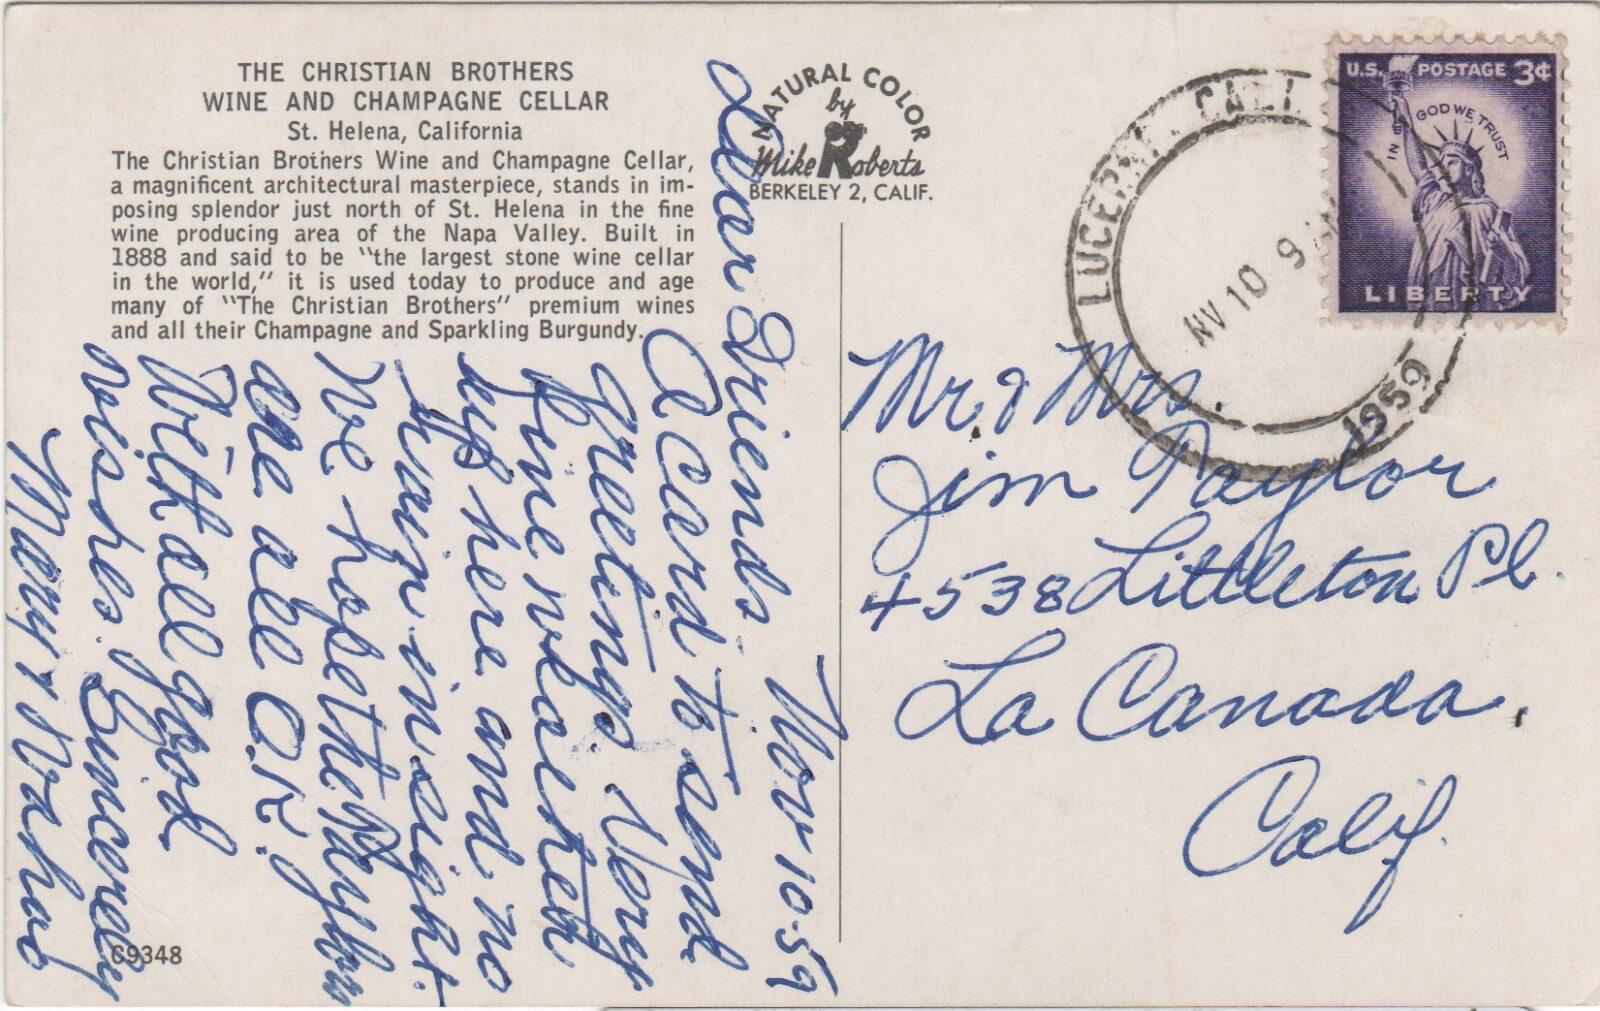 THE CHRISTIAN BROTHERS
WINE AND CHAMPAGNE CELLAR
St. Helena, California
The Christian Brothers Wine and Champagne Cellar,
a magnificent architectural masterpiece, stands in im-
posing splendor just north of St. Helena in the fine
wine producing area of the Napa Valley. Built in
1888 and said to be "the largest stone wine cellar
in the world," it is used today to produce and age
many of "The Christian Brothers" premium wines
and all their Champagne and Sparkling Burgundy.
C9348
NATURAL COLOR
by
Mike Roberts
BERKELEY 2, CALIF.
Nov 10-59
Dear Friends
A card to send
greetings. Very
fine weather
up here and no
rain in sight.
We hope the Taylors
are all O.K.
With all good
wishes. Sincerely
LUCERNE, CALIF.
NV 10 9
1959
U.S. POSTAGE 3¢
IN GOD WE TRUST
LIBERTY
Mr. & Mrs.
Jim Taylor
4538 Littleton Pl.
La Canada,
Calif.